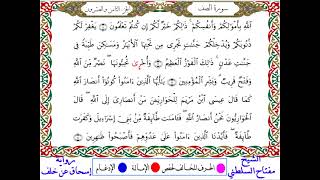 الجزء الثامن والعشرون
سورة الصف
ٱللَّهِ بِأَمْوَٰلِكُمْ وَأَنفُسِكُمْ ذَٰلِكُمْ خَيْرٌ لَّكُمْ إِن كُنتُمْ تَعْلَمُونَ ۝ يَغْفِرْ لَكُمْ
ذُنُوبَكُمْ وَيُدْخِلْكُمْ جَنَّٰتٍ تَجْرِى مِن تَحْتِهَا ٱلْأَنْهَٰرُ وَمَسَٰكِنَ طَيِّبَةً فِى
جَنَّٰتِ عَدْنٍ ذَٰلِكَ ٱلْفَوْزُ ٱلْعَظِيمُ ۝ وَأُخْرَىٰ تُحِبُّونَهَا نَصْرٌ مِّنَ ٱللَّهِ
وَفَتْحٌ قَرِيبٌ وَبَشِّرِ ٱلْمُؤْمِنِينَ ۝ يَٰٓأَيُّهَا ٱلَّذِينَ ءَامَنُوا۟ كُونُوٓا۟ أَنصَارَ ٱللَّهِ
كَمَا قَالَ عِيسَى ٱبْنُ مَرْيَمَ لِلْحَوَارِيِّـۧنَ مَنْ أَنصَارِىٓ إِلَى ٱللَّهِ قَالَ
ٱلْحَوَارِيُّونَ نَحْنُ أَنصَارُ ٱللَّهِ فَـَٔامَنَت طَّآئِفَةٌ مِّنۢ بَنِىٓ إِسْرَٰٓءِيلَ وَكَفَرَت
طَّآئِفَةٌ فَأَيَّدْنَا ٱلَّذِينَ ءَامَنُوا۟ عَلَىٰ عَدُوِّهِمْ فَأَصْبَحُوا۟ ظَٰهِرِينَ ۝
الشيخ
مفتاح السلطني
الحرف المخالف لحفص
الإمالة
الإدغام
رواية
إسحاق عن خلف